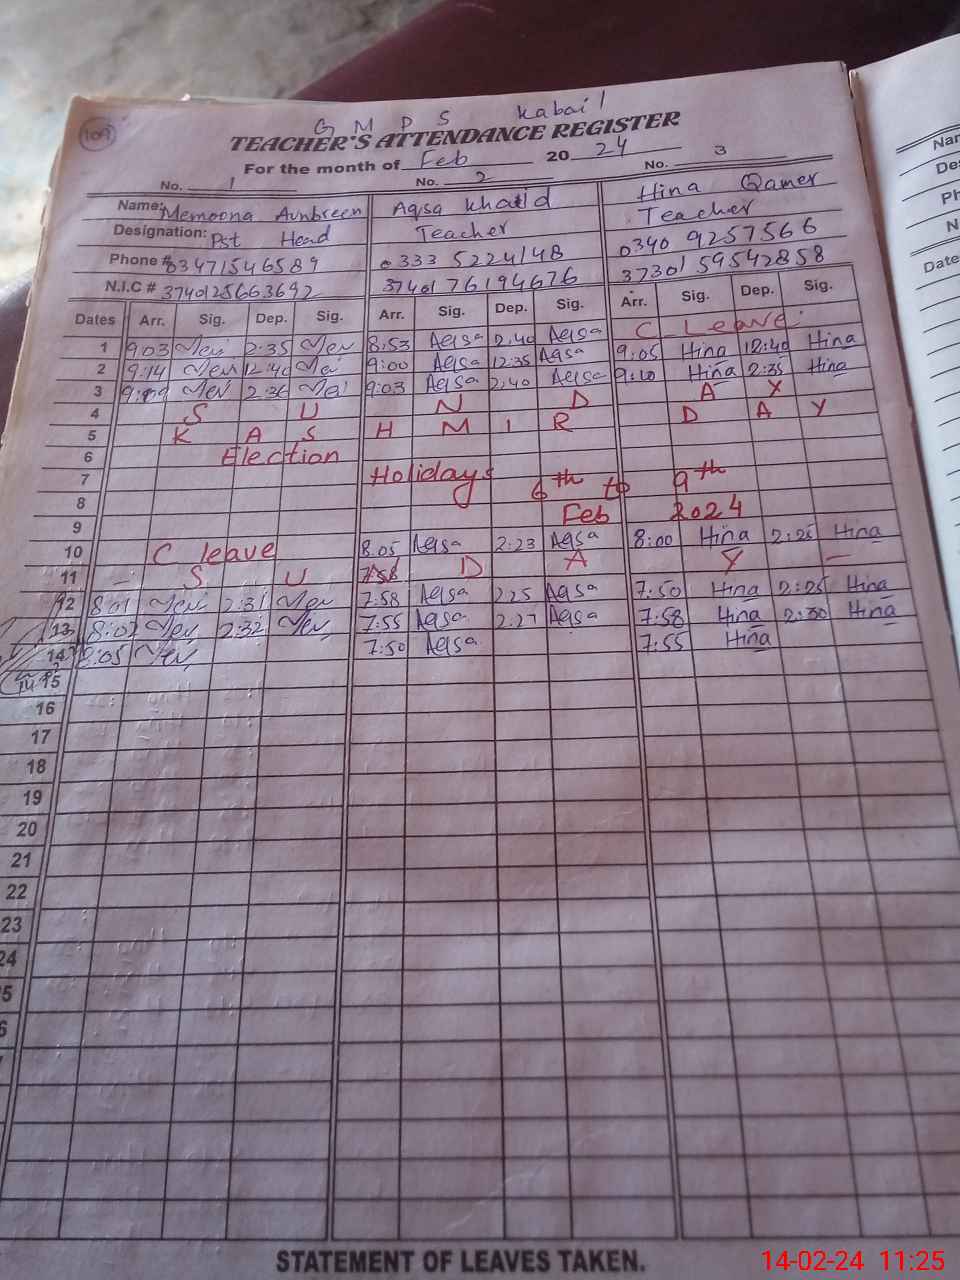 109
G M P S Kabail
TEACHER'S ATTENDANCE REGISTER
For the month of Feb 2024
No. 1 No. 2 No. 3
Name: Memoona Aunbreen Aqsa Khalid Hina Qamer
Designation: Pst Head Teacher Teacher
Phone # 03471546589 0333 5224148 0340 9257566
N.I.C # 3740125663692 37401 76194676 37301 59542858
Dates Arr. Sig. Dep. Sig. Arr. Sig. Dep. Sig. Arr. Sig. Dep. Sig.
1 9:03 2:35 8:53 Aqsa 2:40 Aqsa C Leave
2 9:14 12:40 9:00 Aqsa 12:35 Aqsa 9:05 Hina 12:40 Hina
3 2:36 9:03 Aqsa 2:40 Aqsa 9:10 Hina 2:35 Hina
4 S U N D A Y
5 K A S H M I R D A Y
6 Election
7 Holidays 6th to 9th
8 Feb 2024
9
10 C leave 8:05 Aqsa 2:23 Aqsa 8:00 Hina 2:25 Hina
11 S U D A Y
12 8:01 2:31 7:58 Aqsa 2:25 Aqsa 7:50 Hina 2:25 Hina
13 8:02 2:32 7:55 Aqsa 2:27 Aqsa 7:58 Hina 2:30 Hina
14 8:05 7:50 Aqsa 7:55 Hina
15
16
17
18
19
20
21
22
23
24
5
6
STATEMENT OF LEAVES TAKEN.
14-02-24 11:25
Nar
De
Ph
N
Date